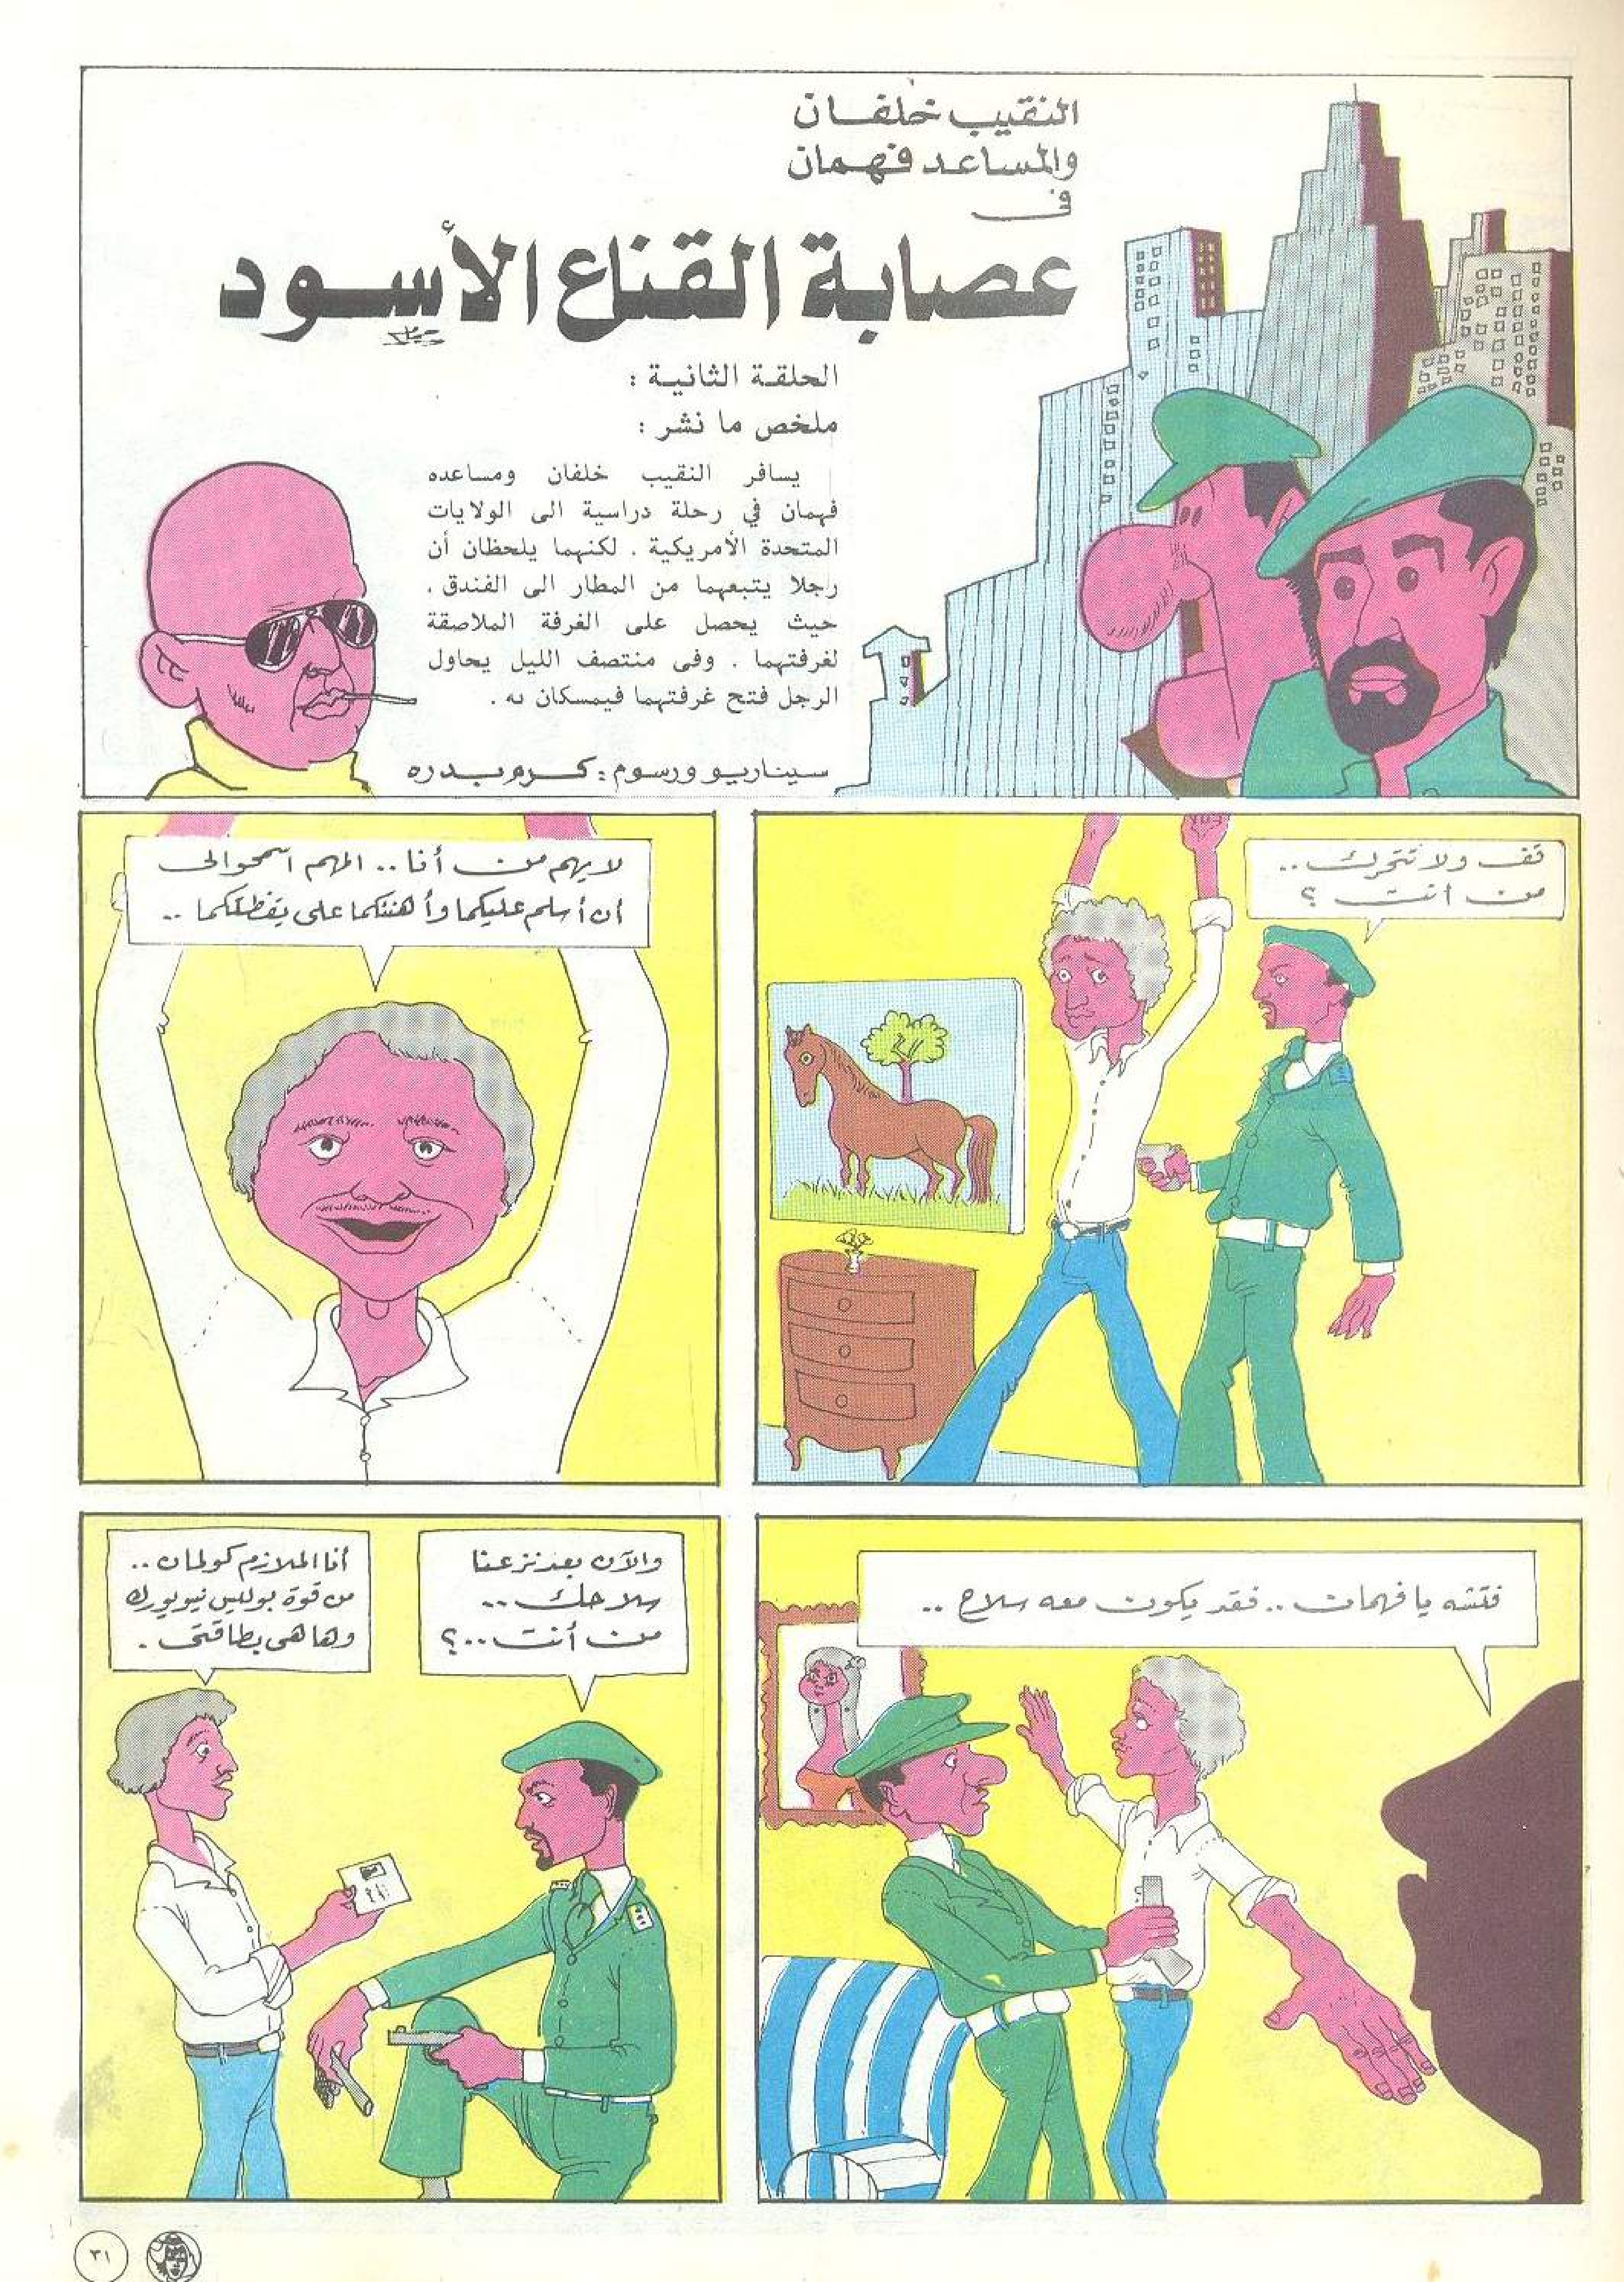 النقيب خلفان
والمساعد فهمان
في
عصابة القناع الأسود
الحلقة الثانية :
ملخص ما نشر :
يسافر النقيب خلفان ومساعده
فهمان في رحلة دراسية الى الولايات
المتحدة الأمريكية . لكنهما يلحظان أن
رجلا يتبعهما من المطار الى الفندق .
حيث يحصل على الغرفة الملاصقة
لغرفتهما . وفى منتصف الليل يحاول
الرجل فتح غرفتهما فيمسكان به .
سيناريو ورسوم : كرم بدره
قف ولا تتحرك ..
من انت ؟
لا يهم من أنا .. المهم اسمحوا لى
أن أسلم عليكما وأهنئكما على يقظتكما ..
فتشه يا فهمان .. فقد يكون معه سلاح ..
والآن بعد نزعنا
سلاحك ..
من أنت ..؟
أنا الملازم كولمان ..
من قوة بوليس نيويورك
وها هى بطاقتى .
٣١